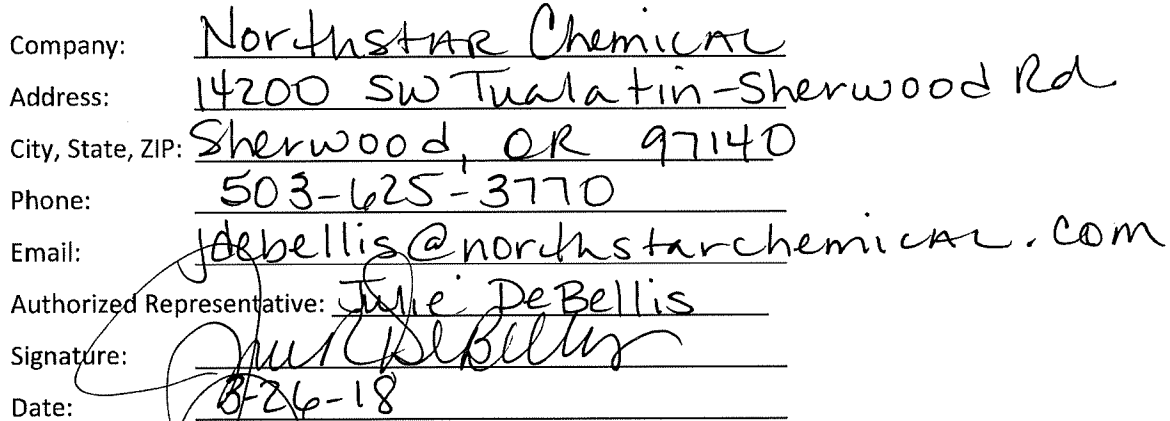 Company: Northstar Chemical
Address: 14200 SW Tualatin-Sherwood Rd
City, State, ZIP: Sherwood, OR 97140
Phone: 503-625-3770
Email: jdebellis@northstarchemical.com
Authorized Representative: Julie DeBellis
Signature: Julie DeBellis
Date: 3-26-18